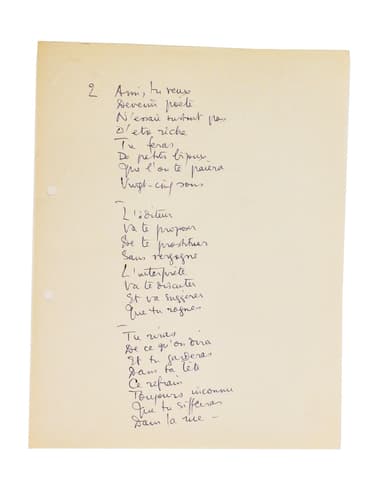 2 Ami, tu veux
Devenir poète
N'essaie surtout pas
D'être riche
Tu feras
De petits bijoux
Que l'on te paiera
Vingt-cinq sous
—
L'éditeur
Va te proposer
De te prostituer
Sans vergogne
L'interprète
Va te discuter
Et va suggérer
Que tu rognes
—
Tu riras
De ce qu'on dira
Et tu garderas
Dans ta tête
Ce refrain
Toujours inconnu
Que tu siffleras
Dans la rue —